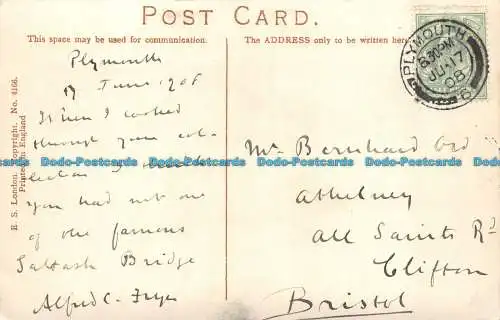 POST CARD.
This space may be used for communication.
The ADDRESS only to be written here
E. S. London. Copyright. No. 4166.
Printed in England
PLYMOUTH
8.30PM
JU 17
08
Plymouth
17 June 1908
When I looked
through your col-
lection I
you had not one
of the famous
Saltash Bridge
Alfred C. Fryer
Mr Bernhard
Athelney
All Saints Rd
Clifton
Bristol
Dodo-Postcards Dodo-Postcards Dodo-Postcards Dodo-Postcards
Dodo-Postcards Dodo-Postcards Dodo-Postcards Dodo-Postcards